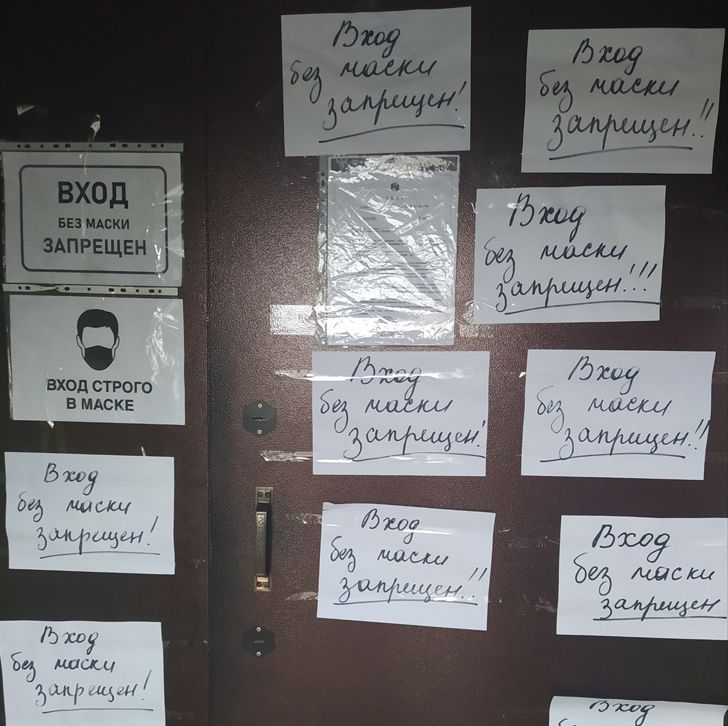 ВХОД
БЕЗ МАСКИ
ЗАПРЕЩЕН
ВХОД СТРОГО
В МАСКЕ
Вход
без маски
запрещен!
Вход
без маски
запрещен!
Вход
без маски
запрещен!
Вход
без маски
запрещен!!
Вход
без маски
запрещен!!!
Вход
без маски
запрещен!
Вход
без маски
запрещен!!
Вход
без маски
запрещен!!
Вход
без маски
запрещен
Вход